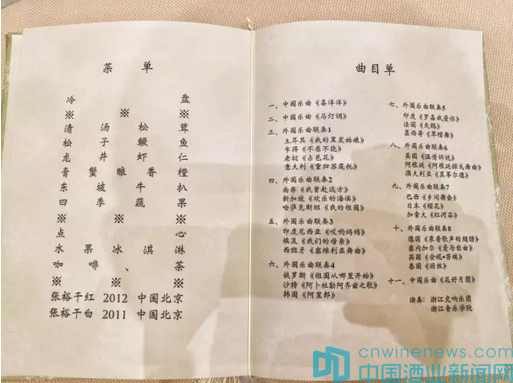 菜 单
冷 盘
※ ※ ※ ※ ※
清 汤 松 茸
松 子 鳜 鱼
龙 井 虾 仁
膏 蟹 酿 香 橙
东 坡 牛 扒
四 季 蔬 果
※ ※ ※ ※ ※
点 心
水 果 冰 淇 淋
咖 啡、 茶
※ ※ ※ ※ ※
张裕干红 2012 中国北京
张裕干白 2011 中国北京
曲目单
一、中国乐曲《喜洋洋》
二、中国乐曲《马灯调》
三、外国乐曲联奏1
土耳其《我的黑发姑娘》
乍得《不屈不挠》
老挝《占芭花》
意大利《重归苏莲托》
四、外国乐曲联奏2
南非《我曾经远方》
新加坡《欢乐的海滨》
哈萨克斯坦《我的祖国》
五、外国乐曲联奏3
印度尼西亚《哎哟妈妈》
埃及《我们的母亲》
西班牙《塞维利亚舞曲》
六、外国乐曲联奏4
俄罗斯《祖国从哪里开始》
沙特《阿卜杜勒阿齐兹之歌》
韩国《阿里郎》
七、外国乐曲联奏5
印度《罗摩我爱你》
法国《天鹅》
墨西哥《草帽舞》
八、外国乐曲联奏6
英国《温情诉说》
阿根廷《阿根廷探戈舞曲》
澳大利亚《莫尔德》
九、外国乐曲联奏7
巴西《乡间舞会》
日本《樱花》
加拿大《红河谷》
十、外国乐曲联奏8
德国《乘着歌声的翅膀》
塞内加尔《爱岛舞曲》
英国《金妮·蓓瑞》
美国《雨丝》
十一、中国乐曲《花好月圆》
演奏：浙江交响乐团
浙江音乐学院
cnwinenews.com
中国酒业新闻网